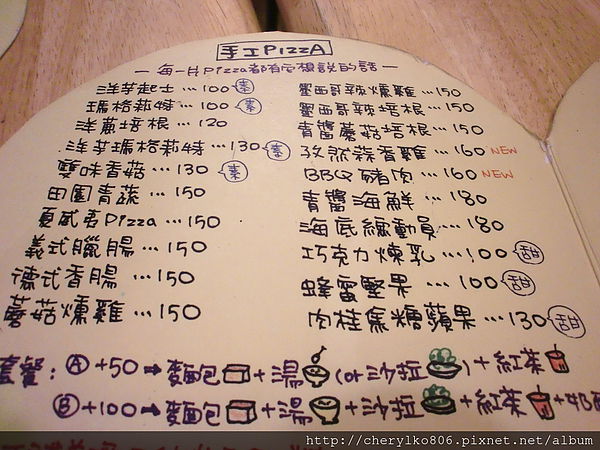 手工PIZZA
— 每一片pizza都有它想說的話 —
洋芋起士 … 100 素
瑪格莉特 … 100 素
洋蔥培根 … 120
洋芋瑪格莉特 … 130 素
雙味香菇 … 130 素
田園青蔬 … 150
夏威夷Pizza … 150
義式臘腸 … 150
德式香腸 … 150
蘑菇燻雞 … 150
墨西哥辣燻雞 … 150
墨西哥辣培根 … 150
青醬蘑菇培根 … 150
孜然蒜香雞 … 160 NEW
BBQ豬肉 … 160 NEW
青醬海鮮 … 180
海底總動員 … 180
巧克力煉乳 … 100 甜
蜂蜜堅果 … 100 甜
肉桂焦糖蘋果 … 130 甜
套餐：A +50 → 麵包 + 湯 (or 沙拉) + 紅茶
B +100 → 麵包 + 湯 + 沙拉 + 紅茶 +
http://cherylko806.pixnet.net/album